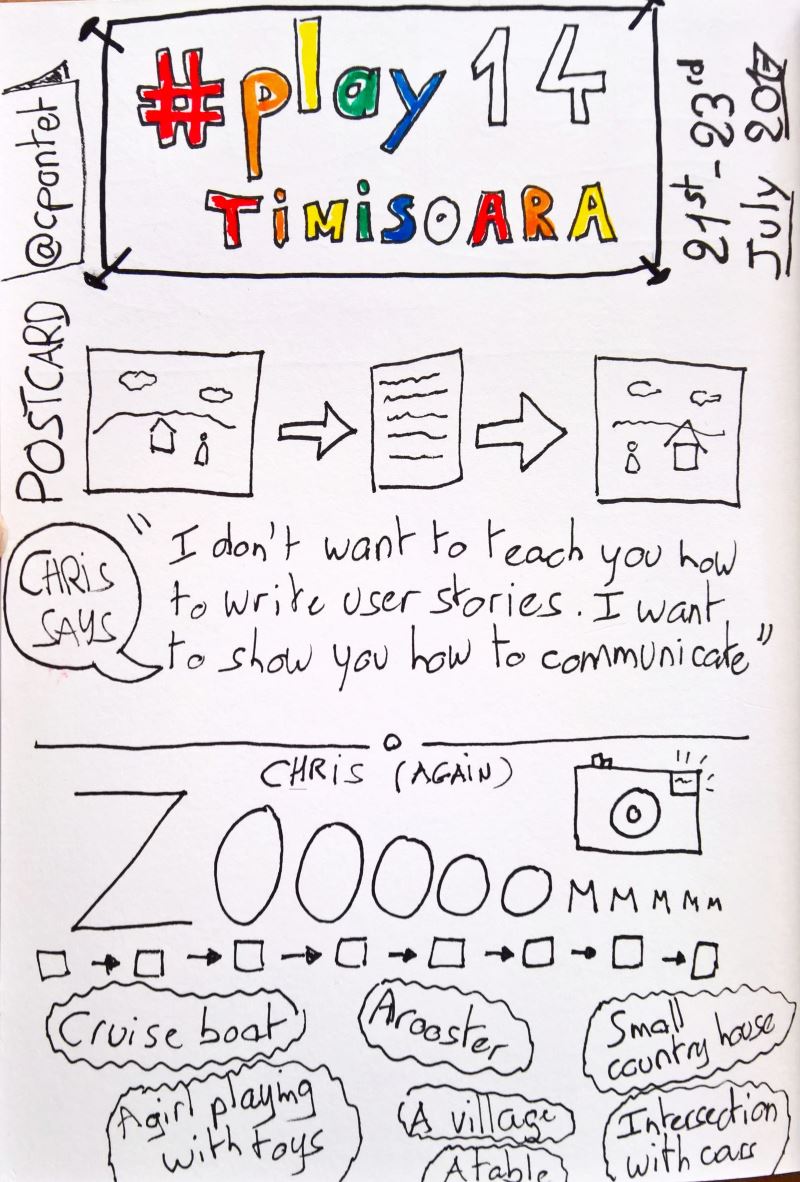 #play14
TiMiSOARA
@cpontet
21st - 23rd
July 2017
POSTCARD
CHRiS
SAYS
"I don't want to teach you how
to write user stories. I want
to show you how to communicate"
CHRiS (AGAiN)
ZOOOOOMMMMM
Cruise boat
A rooster
Small
country house
A girl playing
with toys
A village
Intersection
with cars
A table